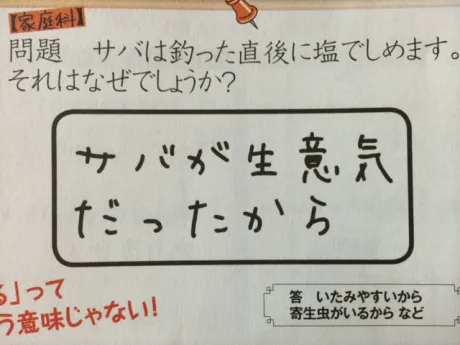 【家庭科】
問題　サバは釣った直後に塩でしめます。
それはなぜでしょうか?
サバが生意気
だったから
る」って
う意味じゃない!
答　いたみやすいから
寄生虫がいるから など